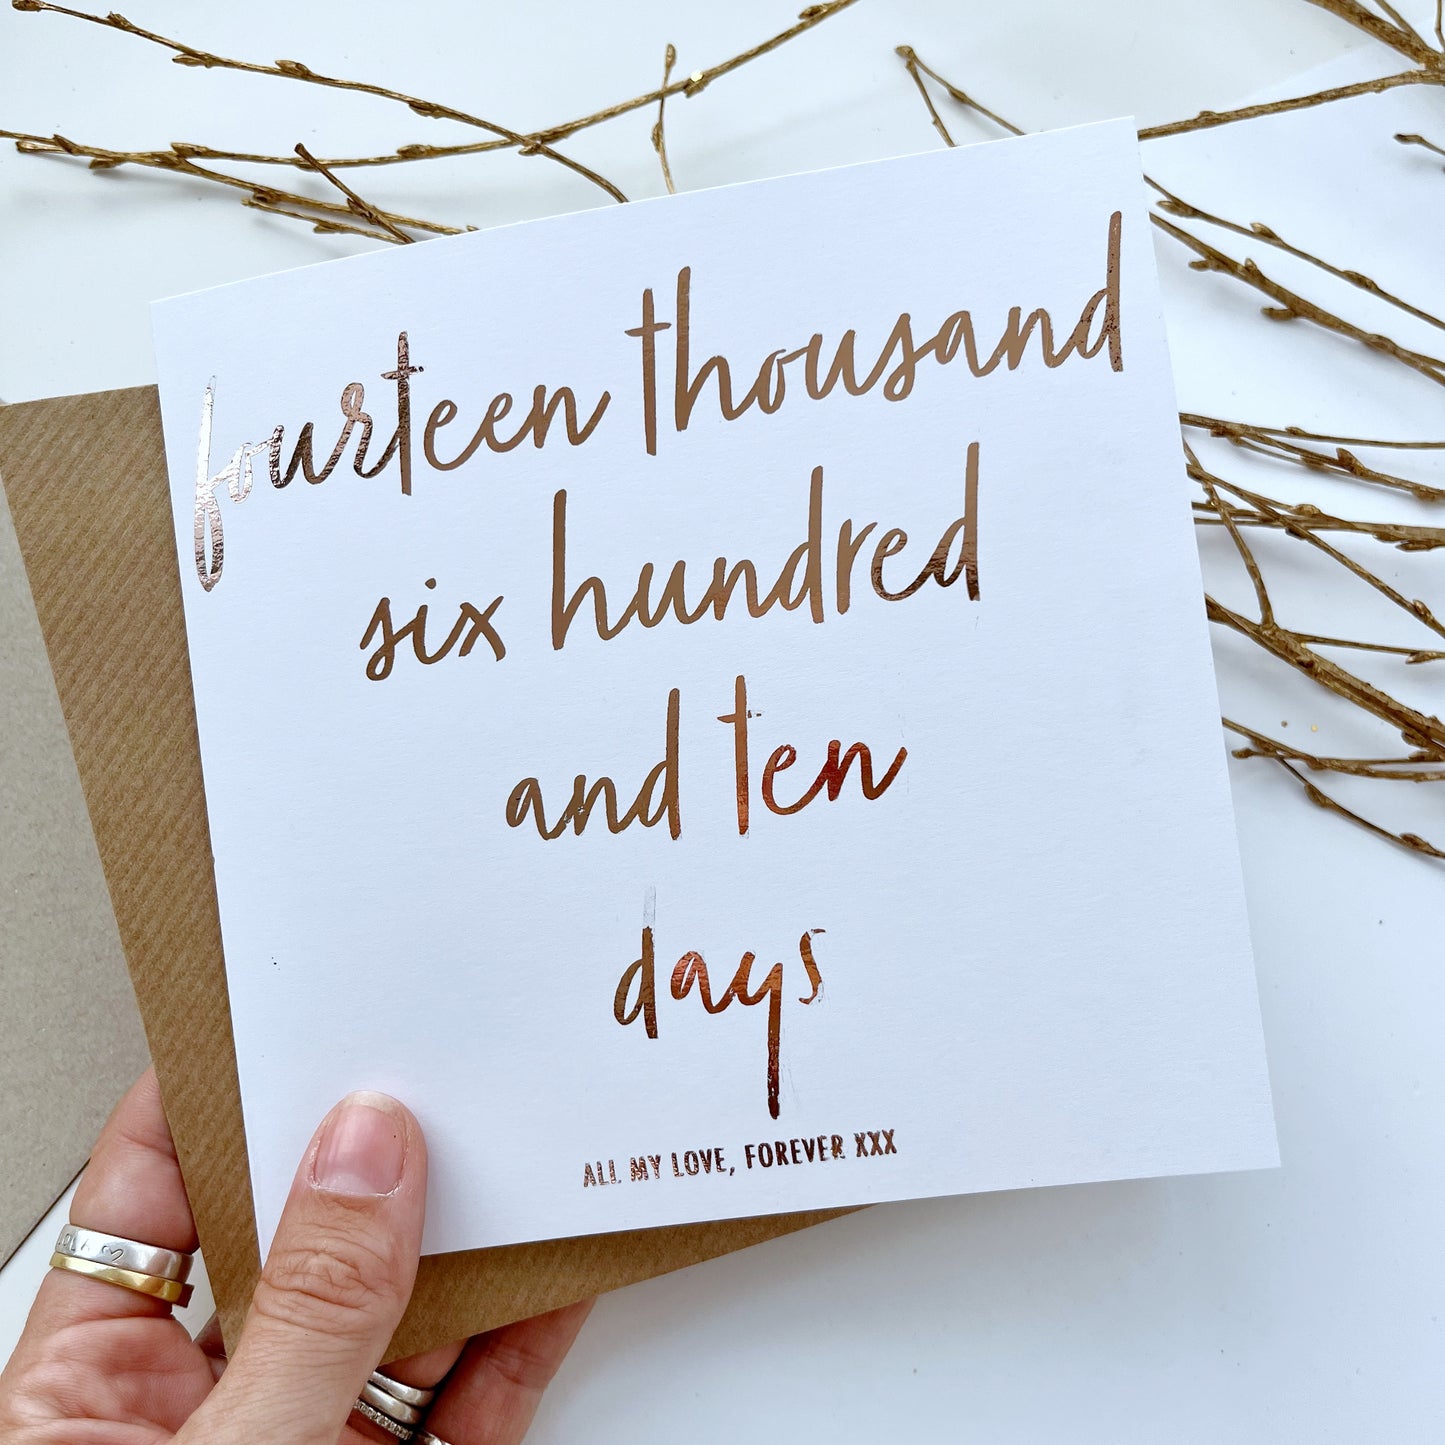 fourteen thousand
six hundred
and ten
days
ALL MY LOVE, FOREVER XXX